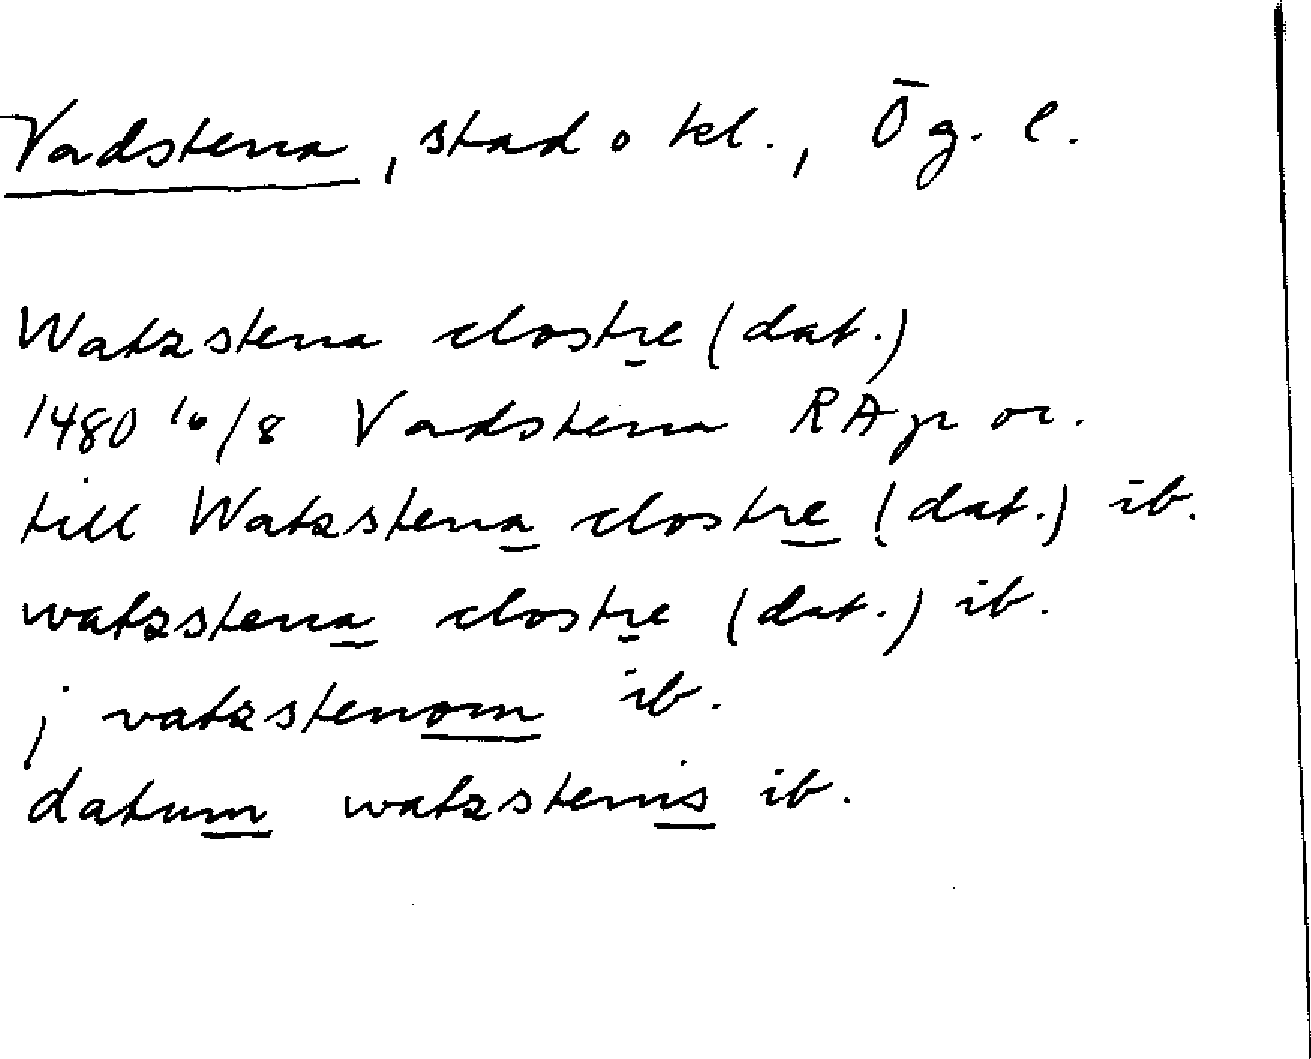 Vadstena, stad o kl., Ög. l.
Watzstena clostre (dat.)
1480 16/8 Vadstena RAp or.
till Watzstena clostre (dat.) ib.
watzstena clostre (dat.) ib.
j vatzstenom ib.
datum watzstenis ib.